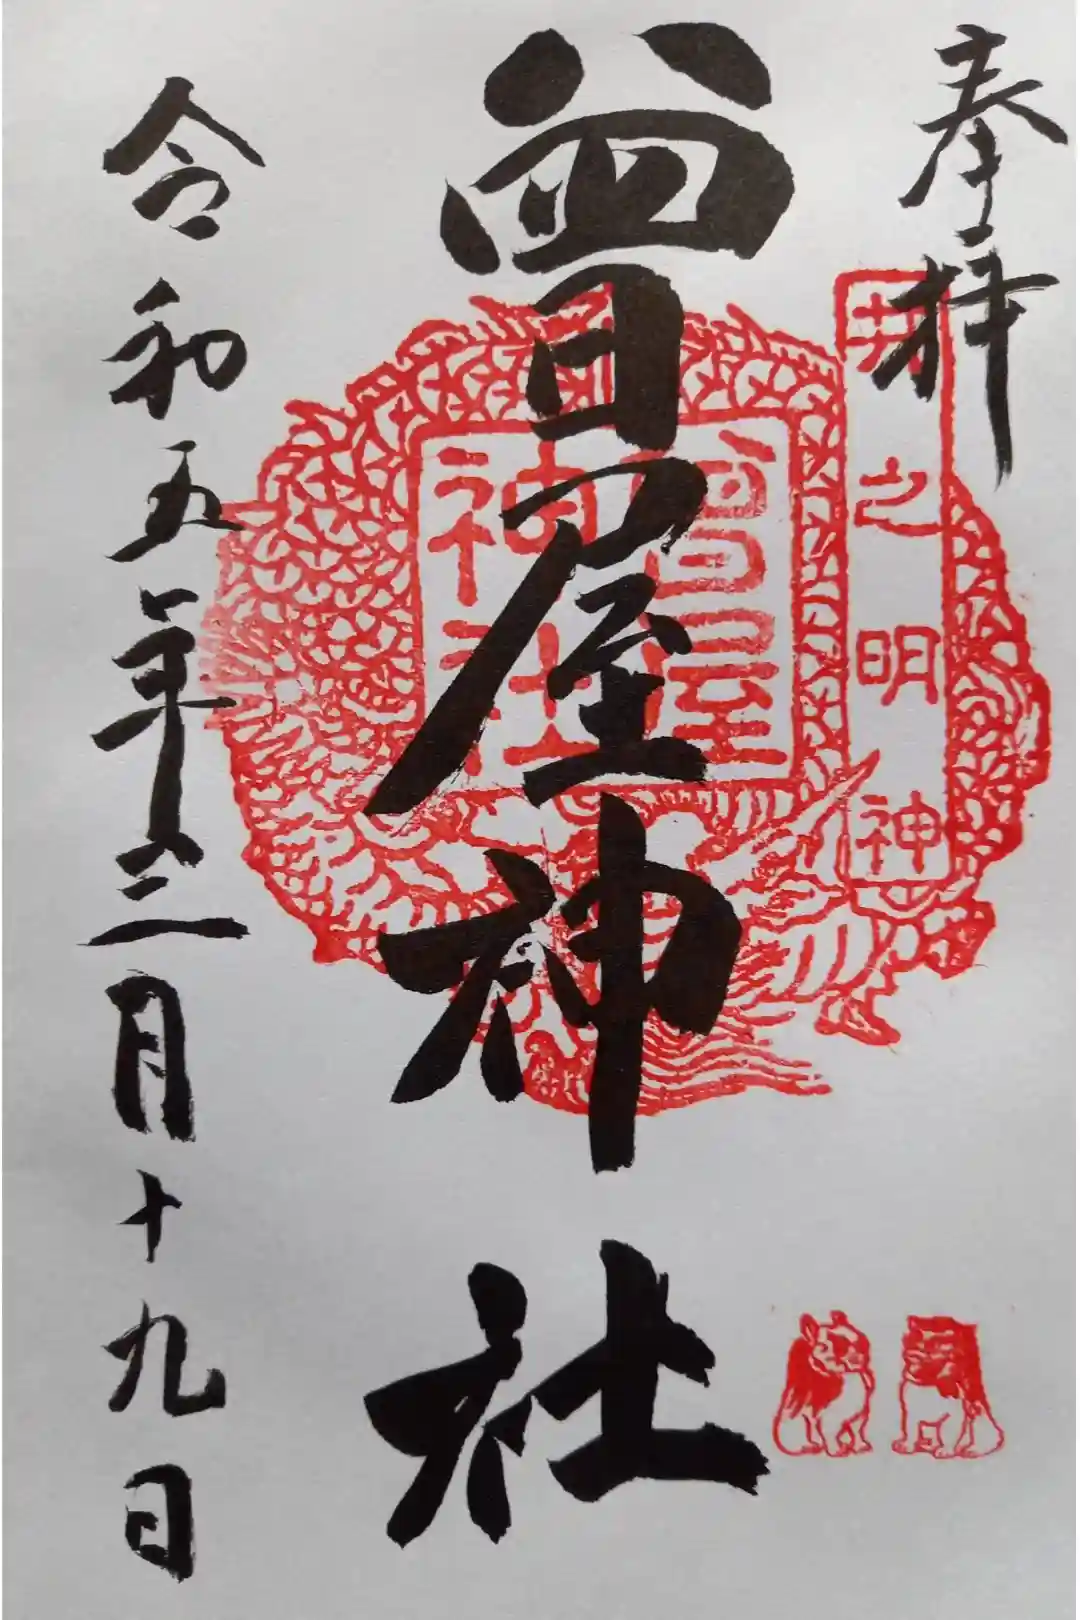 奉拝
井之明神
曽屋神社
曽屋
神社
令和五年三月十九日